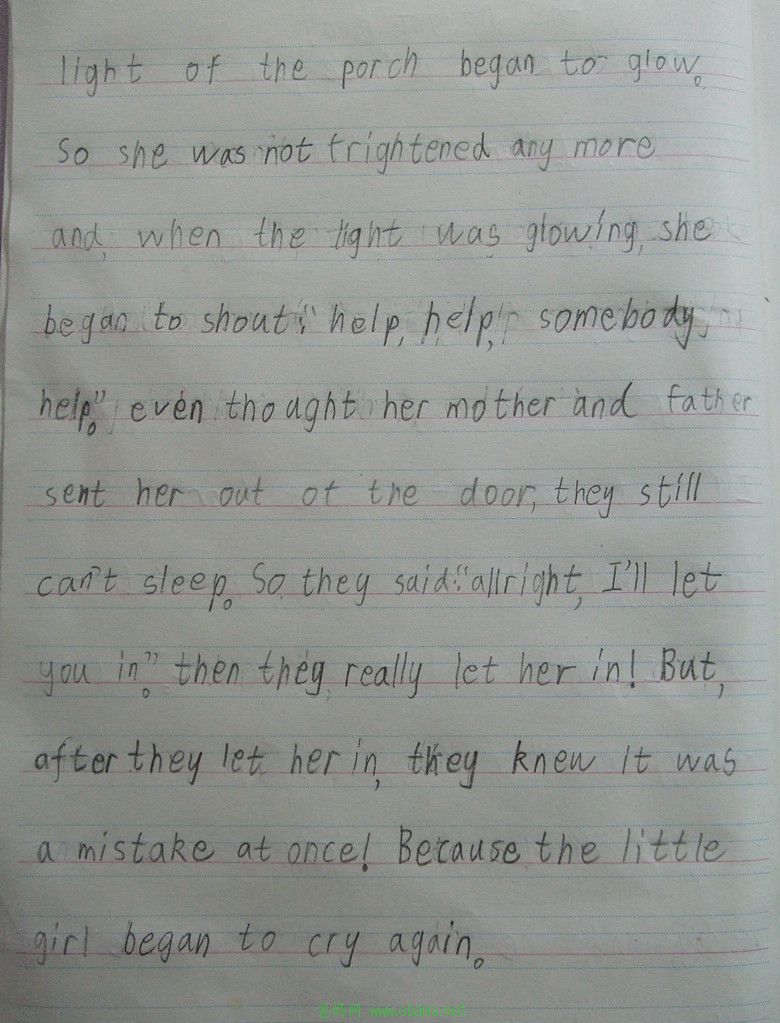 light of the porch began to glow。
So she was not frightened any more
and, when the light was glowing, she
began to shout:"help, help, somebody
help。" even thought her mother and father
sent her out of the door, they still
can't sleep。So they said:"allright, I'll let
you in。" then they really let her in! But,
after they let her in, they knew it was
a mistake at once! Because the little
girl began to cry again。